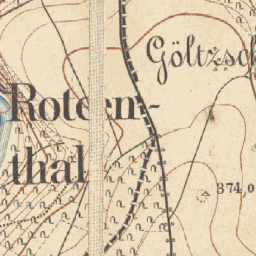 Göltzsch
Rotten-
thal
374,0